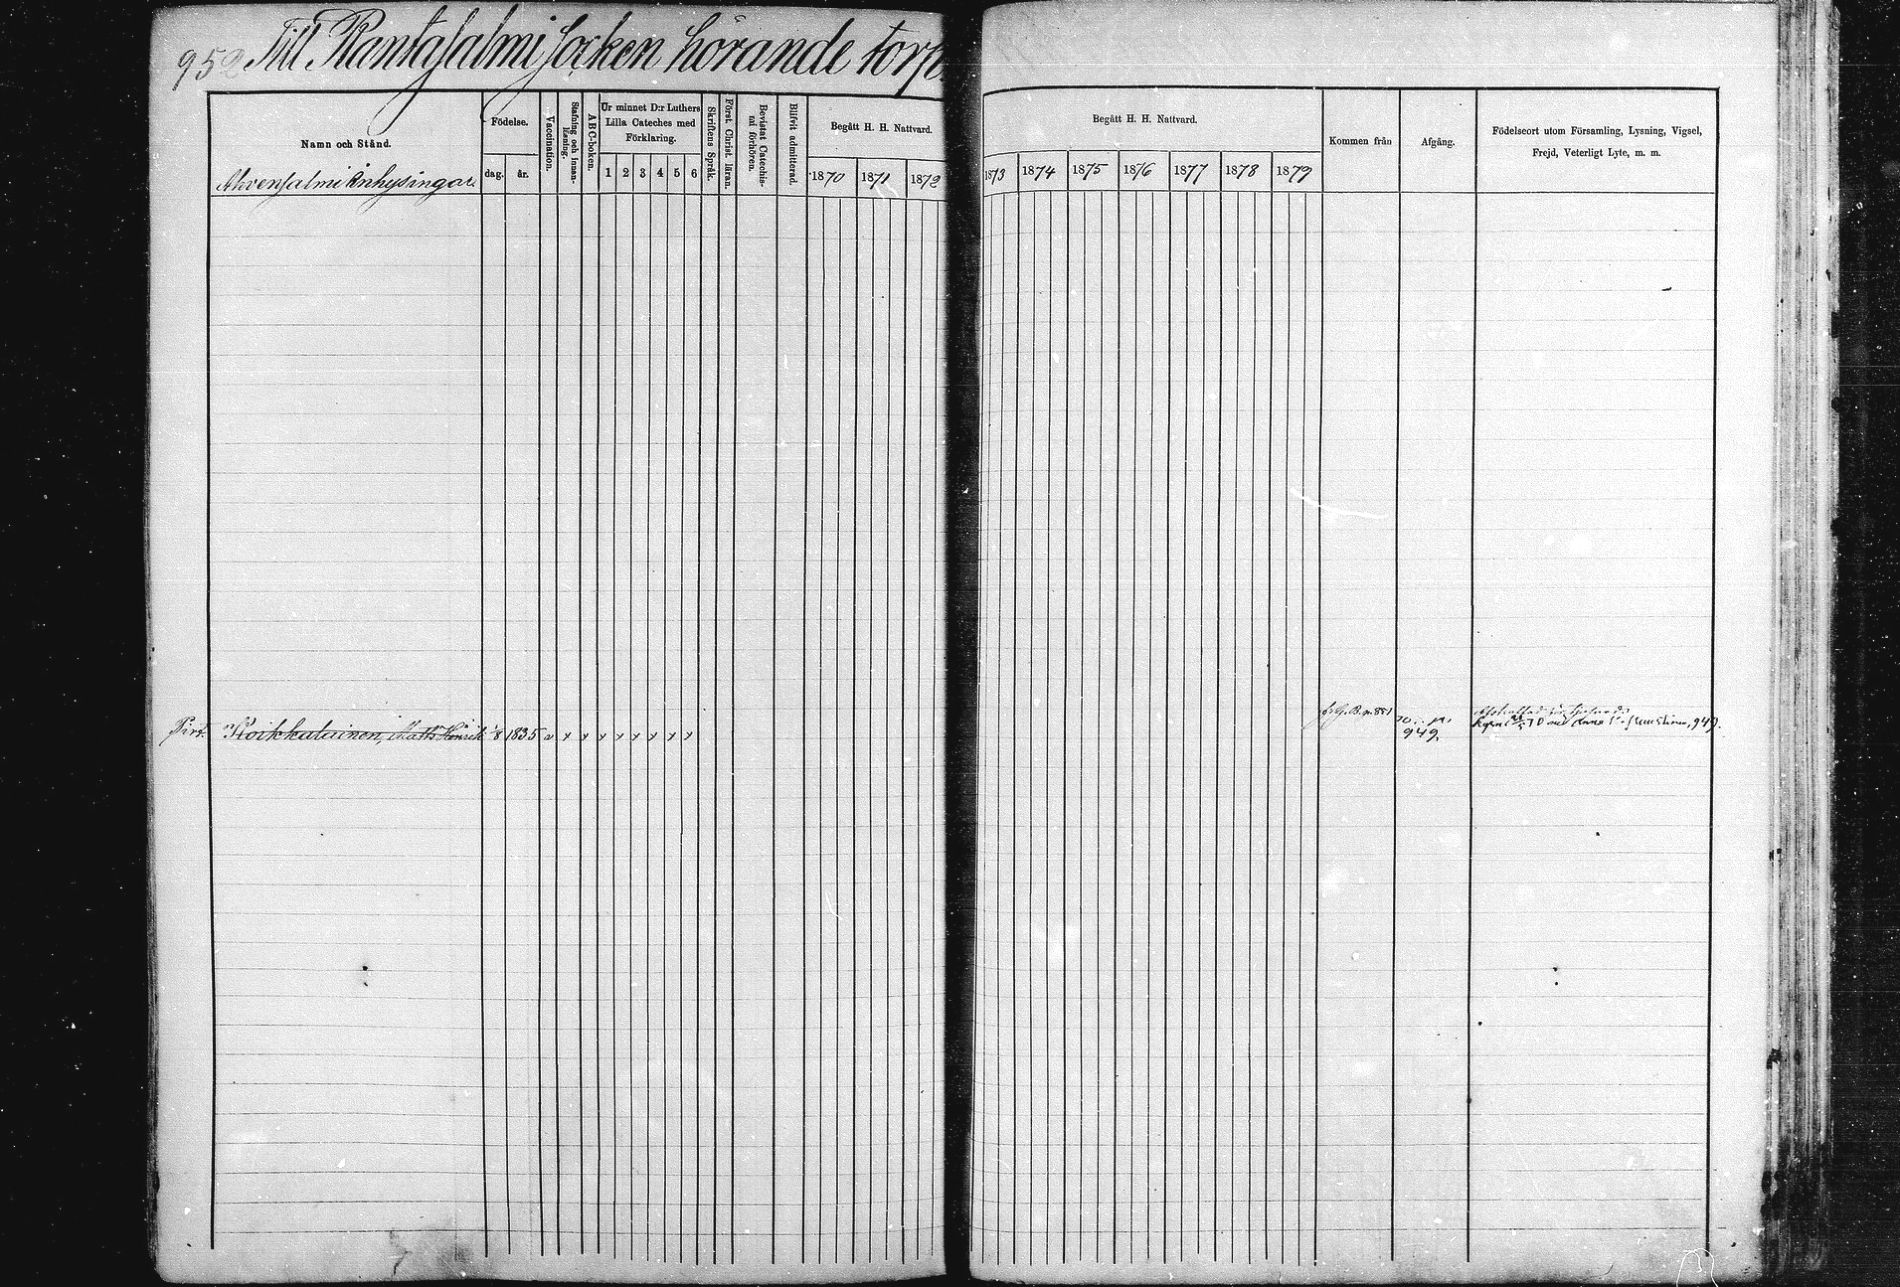 952 Till Rantasalmi socken hörande torp
Namn och Stånd.
Ahvensalmi Inhysingar.
Födelse.
dag. år.
Vaccination.
Stafning och Innan-
läsning.
A B C-boken.
Ur minnet D:r Luthers
Lilla Cateches med
Förklaring.
1 2 3 4 5 6
Skriftens Språk.
Först. Christ. läran.
Bevistat Catechis-
mi förhören.
Blifvit admitterad.
Begått H. H. Nattvard.
1870 1871 1872
Begått H. H. Nattvard.
1873 1874 1875 1876 1877 1878 1879
Kommen från
Afgång.
Födelseort utom Församling, Lysning, Vigsel,
Frejd, Veterligt Lyte, m. m.
Hoikkalainen, Matts Henrik 1/8 1835 v x x x x x x x x
G. B. p. 851
949.
70 med Anna 949.